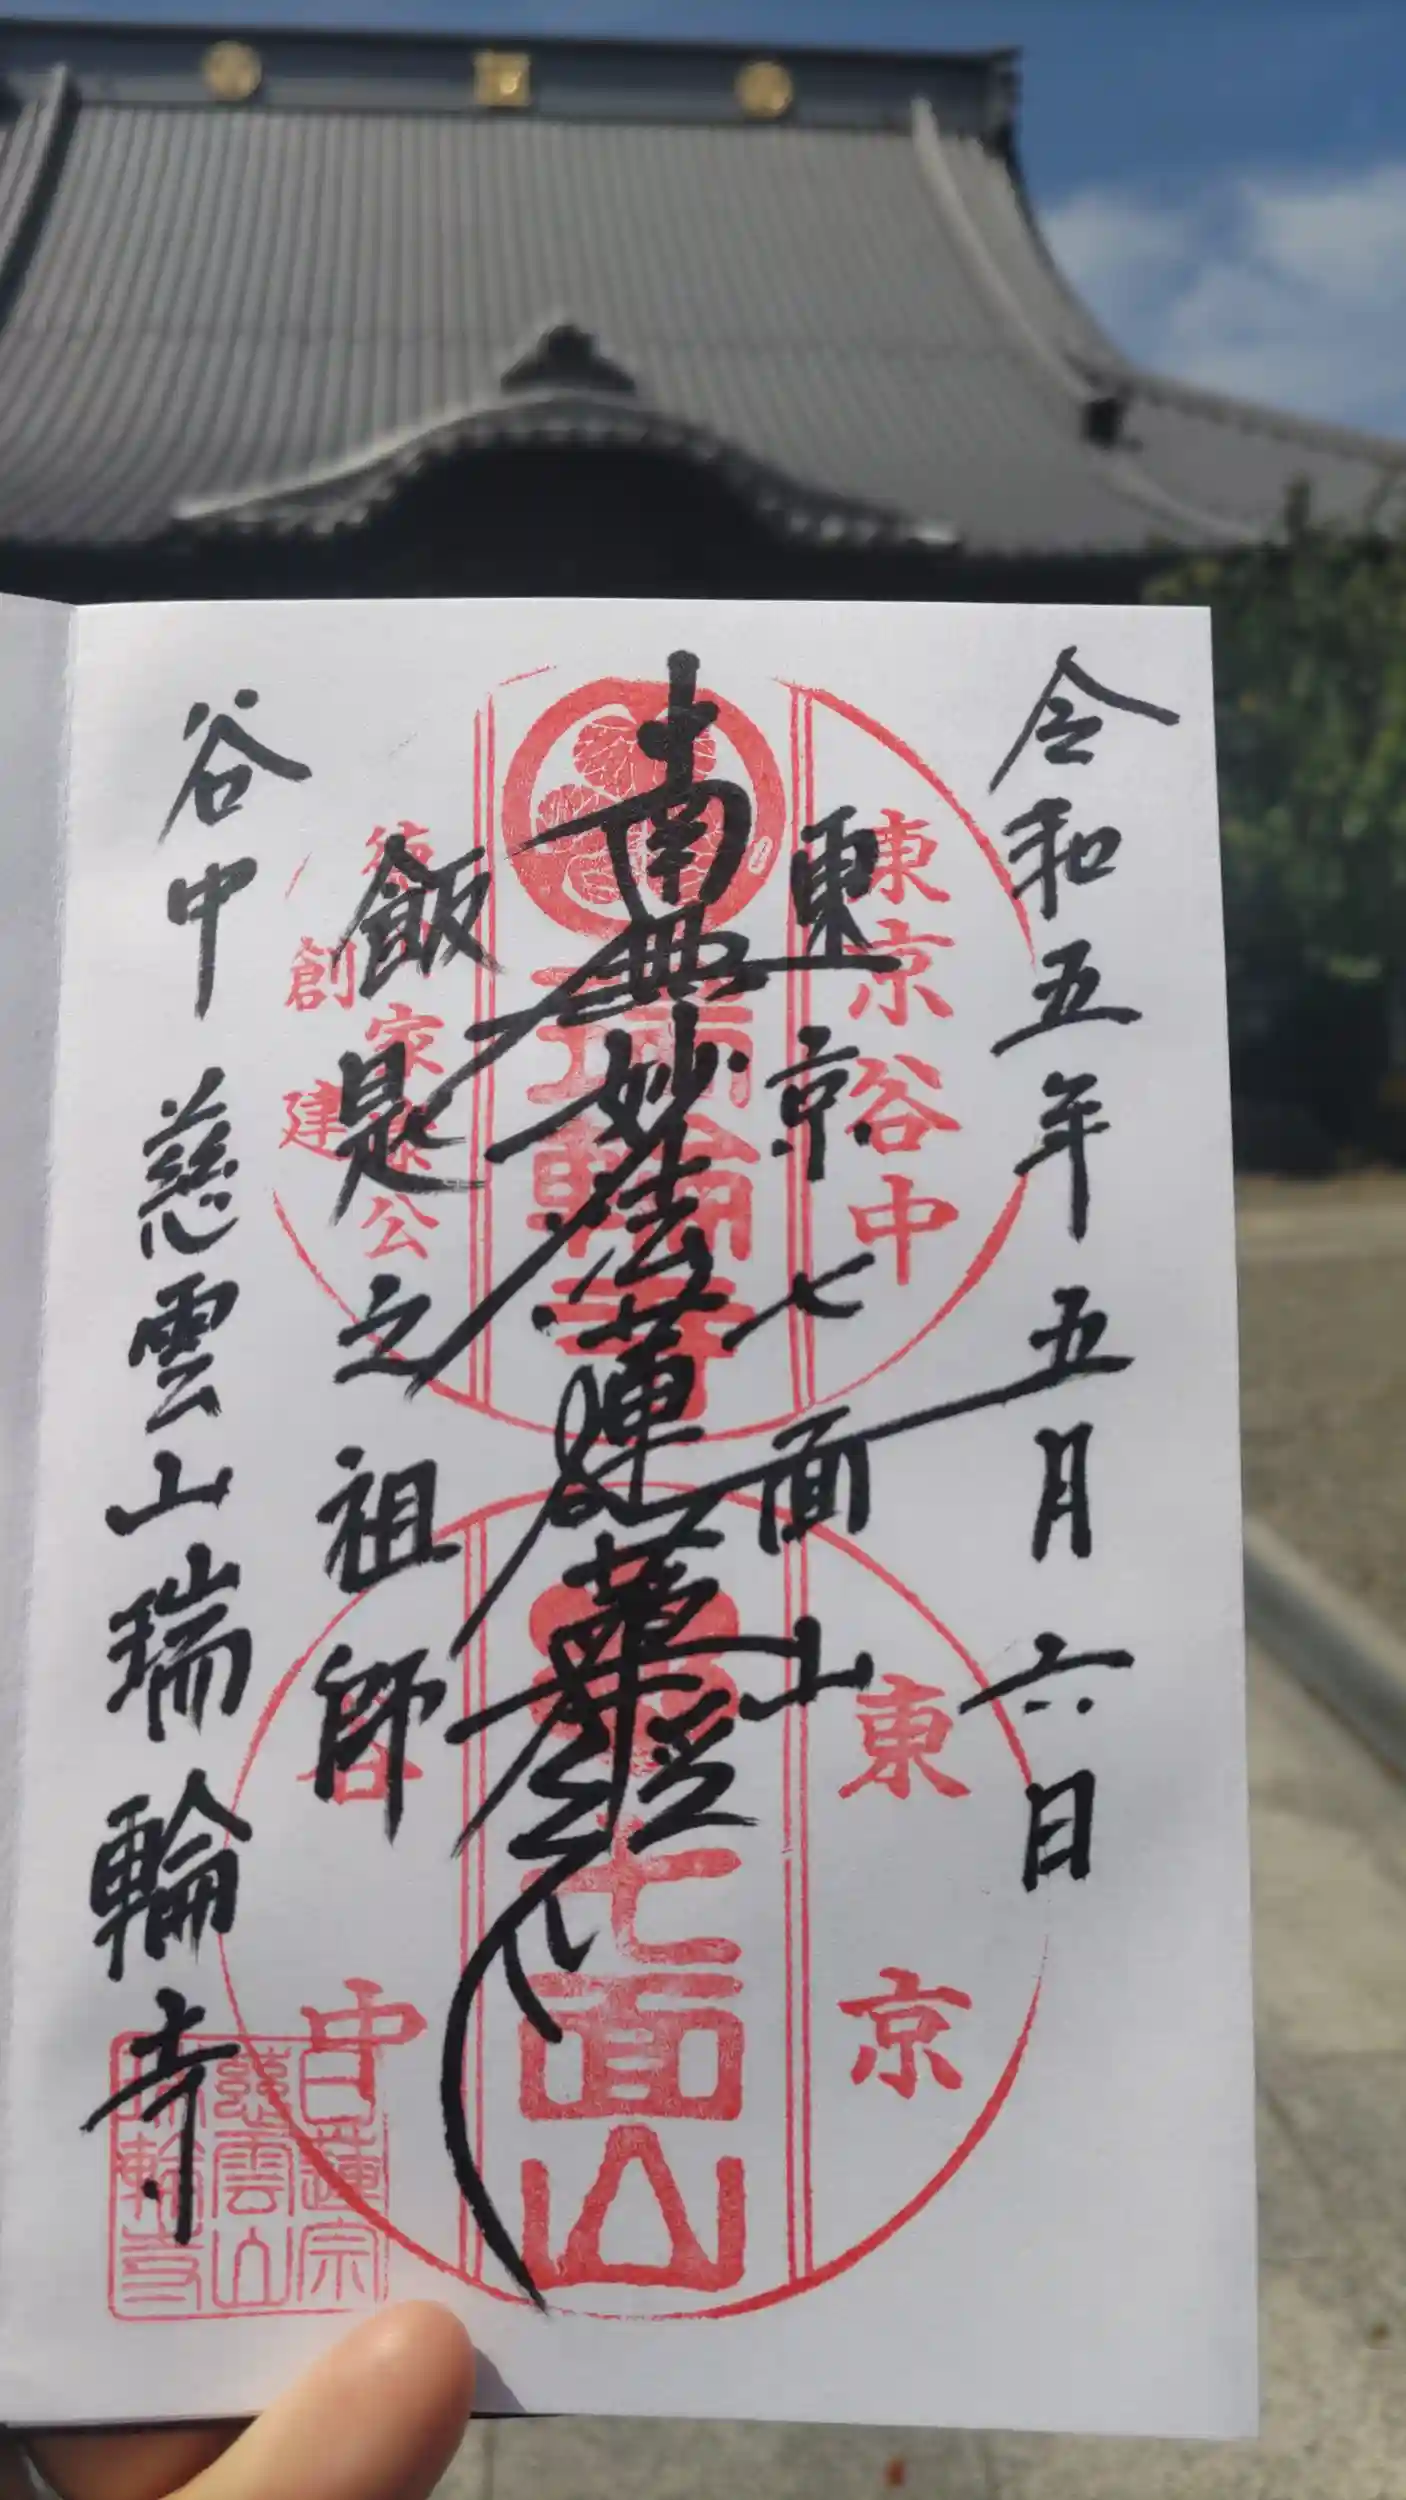 令和五年五月六日
東京七面山
南無妙法蓮華経
飯匙之祖師
谷中 慈雲山瑞輪寺
東京谷中
瑞輪寺
徳川家康公
創建
東京
七面山
谷中
日蓮宗
慈雲山
瑞輪寺